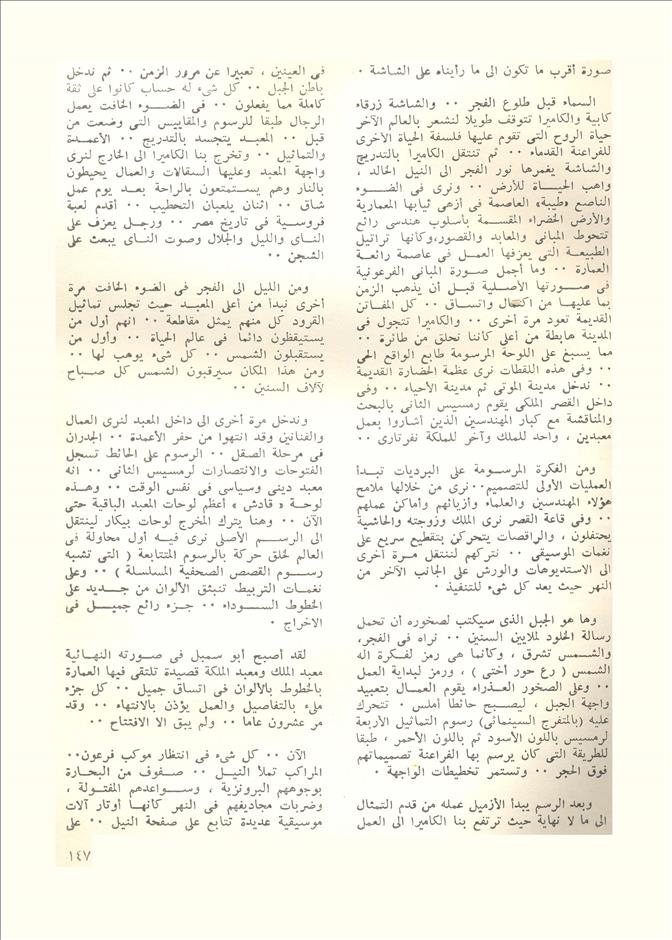 صورة أقرب ما تكون الى ما رأيناه على الشاشة ٠
السماء قبل طلوع الفجر ٠٠ والشاشة زرقاء
كابية والكاميرا تتوقف طويلا لنشعر بالعالم الآخر
حياة الروح التى تقوم عليها فلسفة الحياة الأخرى
للفراعنة القدماء ٠٠ ثم تنتقل الكاميرا بالتدريج
والشاشة يغمرها نور الفجر الى النيل الخالد ،
واهب الحياة للأرض ٠٠ ونرى فى الضوء
الناصع «طيبة» العاصمة فى أزهى ثيابها المعمارية
والأرض الخضراء المقسمة بأسلوب هندسى رائع
تتحوط المبانى والمعابد والقصور، وكأنها تراتيل
الطبيعة التى يعزفها العمل فى عاصمة رائعة
العمارة ٠٠ وما أجمل صورة المبانى الفرعونية
فى صورتها الأصلية قبل أن يذهب الزمن
بما عليها من اكتمال واتساق ٠٠ كل المفاتن
القديمة تعود مرة أخرى ٠٠ والكاميرا تتجول فى
المدينة هابطة من أعلى كأننا نحلق من طائرة ٠٠
مما يسبغ على اللوحة المرسومة طابع الواقع الحى
٠٠ وفى هذه اللقطات نرى عظمة الحضارة القديمة
٠٠ ندخل مدينة الموتى ثم مدينة الأحياء ٠٠ وفى
داخل القصر الملكى يقوم رمسيس الثانى بالبحث
والمناقشة مع كبار المهندسين الذين أشاروا بعمل
معبدين ، واحد للملك وآخر للملكة نفرتارى ٠٠
ومن الفكرة المرسومة على البرديات تبدأ
العمليات الأولى للتصميم٠٠نرى من خلالها ملامح
هؤلاء المهندسين والعلماء وأزيائهم وأماكن عملهم
٠٠ وفى قاعة القصر نرى الملك وزوجته والحاشية
يحتفلون ، والراقصات يتحركن بتقطيع سريع على
نغمات الموسيقى ٠٠ نتركهم لننتقل مرة أخرى
الى الاستديوهات والورش على الجانب الآخر من
النهر حيث يعد كل شىء للتنفيذ ٠
وها هو الجبل الذى سيكتب لصخوره أن تحمل
رسالة الخلود لملايين السنين ٠٠ نراه فى الفجر،
والشمس تشرق ، وكأنما هى رمز لفكرة اله
الشمس ( رع حور أختى ) ، ورمز لبداية العمل
٠٠ وعلى الصخور العذراء يقوم العمال بتعبيد
واجهة الجبل ، ليصبح حائطا أملس ٠ تتحرك
عليه (بالمتفرج السينمائى) رسوم التماثيل الأربعة
لرمسيس باللون الأسود ثم باللون الأحمر ، طبقا
للطريقة التى كان يرسم بها الفراعنة تصميماتهم
فوق الحجر ٠٠ وتستمر تخطيطات الواجهة ٠
وبعد الرسم يبدأ الأزميل عمله من قدم التمثال
الى ما لا نهاية حيث ترتفع بنا الكاميرا الى العمل
فى العينين ، تعبيرا عن مرور الزمن ٠٠ ثم ندخل
باطن الجبل ٠٠ كل شىء له حساب كانوا على ثقة
كاملة مما يفعلون ٠٠ فى الضوء الخافت يعمل
الرجال طبقا للرسوم والمقاييس التى وضعت من
قبل ٠٠ المعبد يتجسد بالتدريج ٠٠ الأعمدة
والتماثيل ٠٠ وتخرج بنا الكاميرا الى الخارج لنرى
واجهة المعبد وعليها السقالات والعمال يحيطون
بالنار وهم يستمتعون بالراحة بعد يوم عمل
شاق ٠٠ اثنان يلعبان التحطيب ٠٠ أقدم لعبة
فروسية فى تاريخ مصر ٠٠ ورجل يعزف على
الناى والليل والجلال وصوت الناى يبعث على
الشجن ٠٠
ومن الليل الى الفجر فى الضوء الخافت مرة
أخرى نبدأ من أعلى المعبد حيث تجلس تماثيل
القرود كل منهم يمثل مقاطعة ٠٠ انهم أول من
يستيقظون دائما فى عالم الحياة ٠٠ وأول من
يستقبلون الشمس ٠٠ كل شىء يوهب لها ٠٠
ومن هذا المكان سيرقبون الشمس كل صباح
لآلاف السنين ٠٠
وندخل مرة أخرى الى داخل المعبد لنرى العمال
والفنانين وقد انتهوا من حفر الأعمدة ٠٠ الجدران
فى مرحلة الصقل ٠٠ الرسوم على الحائط تسجل
الفتوحات والانتصارات لرمسيس الثانى ٠٠ انه
معبد دينى وسياسى فى نفس الوقت ٠٠ وهذه
لوحة « قادش » أعظم لوحات المعبد الباقية حتى
الآن ٠٠ وهنا يترك المخرج لوحات بيكار لينتقل
الى الرسم الأصلى نرى فيه أول محاولة فى
العالم لخلق حركة بالرسوم المتتابعة ( التى تشبه
رسوم القصص الصحفية المسلسلة ) ٠٠ وعلى
نغمات التربيط تنبثق الألوان من جديد على
الخطوط السوداء ٠٠ جزء رائع جميل فى
الاخراج ٠
لقد أصبح أبو سمبل فى صورته النهائية
معبد الملك ومعبد الملكة قصيدة تلتقى فيها العمارة
بالخطوط بالألوان فى اتساق جميل ٠٠ كل جزء
ملىء بالتفاصيل والعمل يؤذن بالانتهاء ٠٠ وقد
مر عشرون عاما ٠٠ ولم يبق الا الافتتاح ٠٠
الآن ٠٠ كل شىء فى انتظار موكب فرعون٠٠
المراكب تملأ النيل ٠٠ صفوف من البحارة
بوجوههم البرونزية ، وسواعدهم المفتولة ،
وضربات مجاديفهم فى النهر كأنها أوتار آلات
موسيقية عديدة تتابع على صفحة النيل ٠٠ على
١٤٧